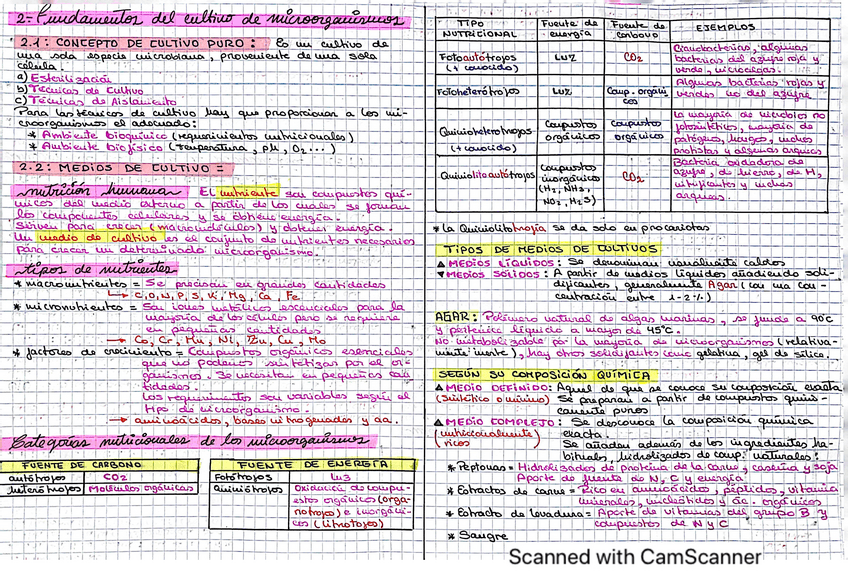 2- Fundamentos del cultivo de microorganismos
2.1: CONCEPTO DE CULTIVO PURO: Es un cultivo de
una sola especie microbiana, proveniente de una sola
célula.
a) Esterilización
b) Técnicas de Cultivo
c) Técnicas de Aislamiento
Para las técnicas de cultivo hay que proporcionar a los mi-
croorganismos el adecuado:
* Ambiente bioquímico (requerimientos nutricionales)
* Ambiente biofísico (temperatura, pH, O2...)
2.2: MEDIOS DE CULTIVO =
nutrición humana El nutriente son compuestos quí-
micos del medio externo a partir de los cuales se forman
los componentes celulares y se obtiene energía.
Sirven para crecer (macromoléculas) y obtener energía.
Un medio de cultivo es el conjunto de nutrientes necesarios
para crecer un determinado microorganismo.
tipos de nutrientes
* macronutrientes = Se precisan en grandes cantidades
C, O, N, P, S, K, Mg, Ca, Fe
* micronutrientes = Son iones metálicos esenciales para la
mayoría de las células pero se requiere
en pequeñas cantidades
Co, Cr, Mu, Ni, Zu, Cu, Mo
* factores de crecimiento = Compuestos orgánicos esenciales
que no podemos sintetizar por el or-
ganismos. Se necesitan en pequeñas can
tidades.
Los requerimientos son variables según el
tipo de microorganismo.
aminoácidos, bases nitrogenadas y aa.
Categorías nutricionales de los microorganismos
FUENTE DE CARBONO
autótrofos CO2
heterótrofos Moléculas orgánicas
FUENTE DE ENERGÍA
Fotótrofos Luz
Quimiótrofos Oxidación de compu-
estos orgánicos (orga-
notrofos) e inorgáni-
cos (litotrofos)
TIPO NUTRICIONAL Fuente de energía Fuente de carbono EJEMPLOS
Fotoautótrofos (+ conocido) LUZ CO2 Cianobacterias, algunas
bacterias del azufre roja y
verde, microalgas.
Fotoheterótrofos LUZ Comp. orgánicos Algunas bacterias rojas y
verdes no del azufre
Quimioheterotrofos (+ conocido) compuestos orgánicos compuestos orgánicos La mayoría de microbios no
fotosintéticos, mayoría de
patógenos, hongos, muchos
protistas y algunas arqueas
Quimiolitoautótrofos compuestos inorgánicos (H2, NH3, NO2, H2S) CO2 Bacteria oxidadora de
azufre, de hierro, de H,
nitrificantes y muchas
arqueas.
* La Quimiolitotrofía se da solo en procariotas
TIPOS DE MEDIOS DE CULTIVOS
MEDIOS LÍQUIDOS: Se denominan usualmente caldos
MEDIOS SÓLIDOS: A partir de medios líquidos añadiendo soli-
dificantes, generalmente Agar (con una con-
centración entre 1-2%)
AGAR: Polímero natural de algas marinas, se funde a 90°c
y pertenece líquido a mayor de 45°C.
NO metabolizable por la mayoría de microorganismos (relativa-
mente inerte), hay otros solidificantes como gelatina, gel de sílice.
SEGÚN SU COMPOSICIÓN QUÍMICA
MEDIO DEFINIDO: Aquel de que se conoce su composición exacta
(sintético o mínimo) Se preparan a partir de compuestos quími-
camente puros
MEDIO COMPLEJO: Se desconoce la composición química
(nutricionalmente ricos) exacta.
Se añaden además de los ingredientes ha-
bituales, hidrolizados de comp. naturales:
* Peptonas = Hidrolizados de proteína de la carne, caseína y soja
Aporte de fuente de N, C y energía
* Extractos de carne = Rico en aminoácidos, péptidos, vitamina
minerales, nucleótidos y ác. orgánicos
* Extracto de levadura = Aporte de vitaminas del grupo B y
compuestos de N y C
* Sangre
Scanned with CamScanner